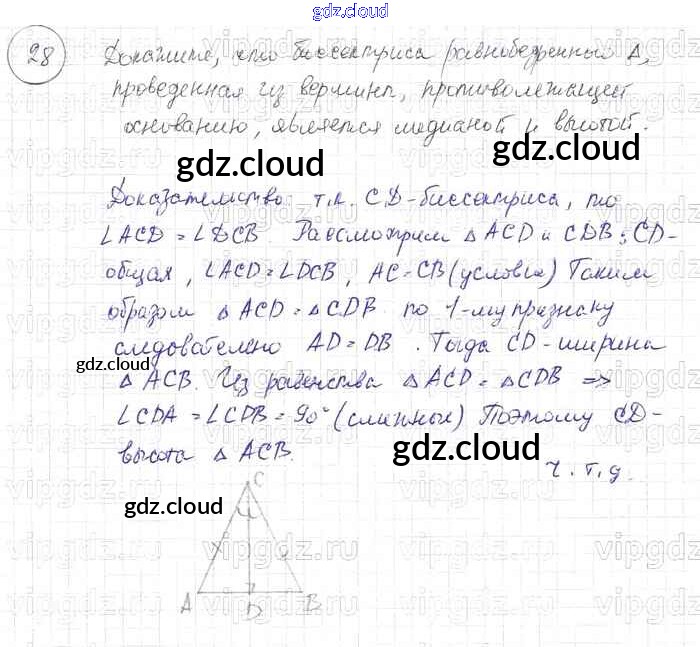 gdz.cloud
28 Докажите, что биссектриса равнобедренный Δ,
проведенная из вершины, противолежащей
основанию, является медианой и высотой.
gdz.cloud
gdz.cloud
Доказательство т.к. CD-биссектриса, то
∠ACD = ∠DCB. Рассмотрим Δ ACD и CDB; CD-
общая, ∠ACD=∠DCB, AC=CB (условие) Таким
образом Δ ACD = Δ CDB по 1-му признаку
gdz.cloud
следовательно AD = DB. Тогда CD-ширина
gdz.cloud
Δ ACB. Из равенства Δ ACD = Δ CDB =>
∠CDA = ∠CDB = 90° (смежные) Поэтому CD-
высота Δ ACB.
gdz.cloud
ч.т.д.
C
gdz.cloud
gdz.cloud
A D B
gdz.cloud
gdz.cloud